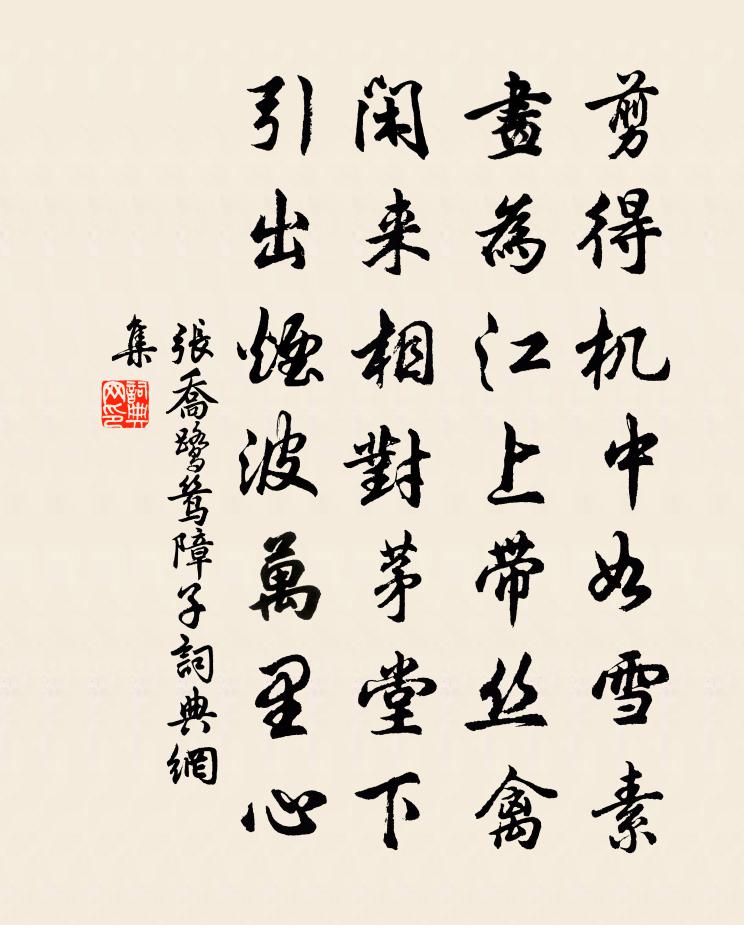 剪得机中如雪素
畫為江上带丝禽
闲来相對茅堂下
引出煙波萬里心
張喬鹭鸶障子詞典網
集
詞典网印